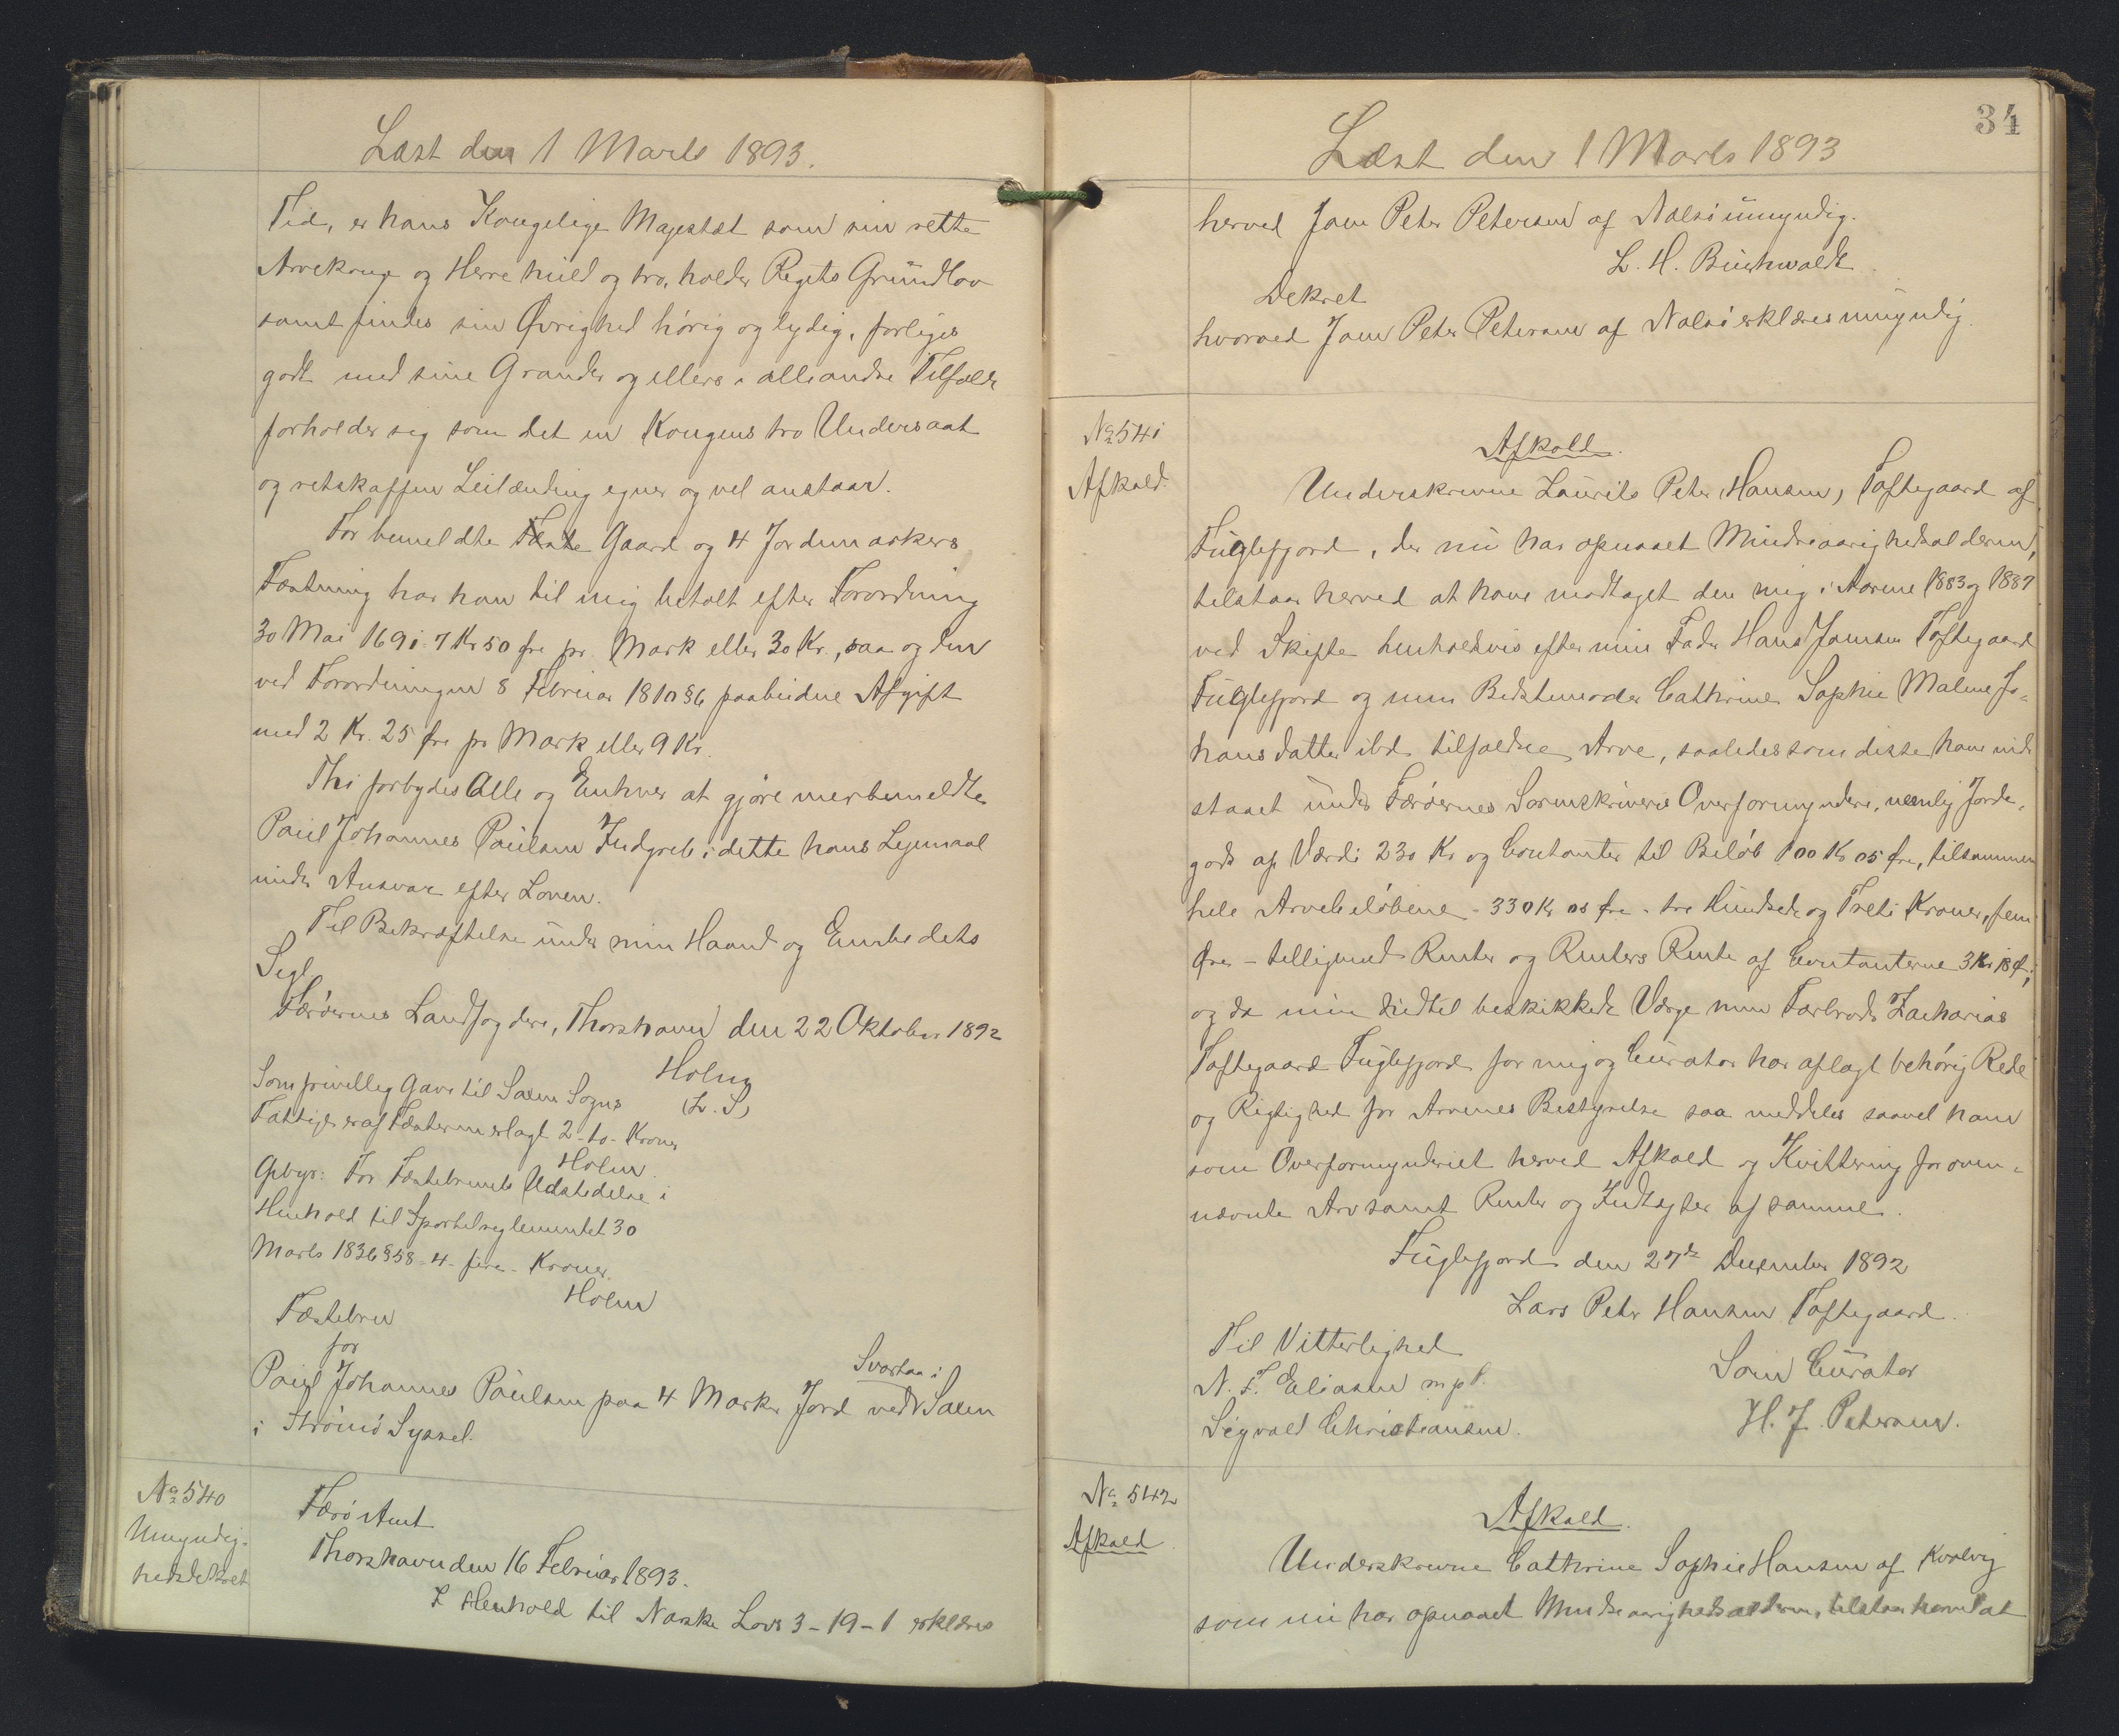 Læst den 1 Marts 1893.
Tid, er hans Kongelige Majestæt som sin rette
Arvekonge og Herre huld og tro, holder Rigets Grundlov
samt findes sin Øvrighed hörig og lydig, forliges
godt med sine Grander og ellers i alle andre Tilfælde
forholder sig som det en Kongens tro Undersaat
og retskaffen Leilænding egner og vel anstaar.
For bemeldte Fæste Gaard og 4 Jordemarkers
Fæstning har han til mig betalt efter Forordning
30 Mai 1691 7 Kr 50 Øre pr. Mark eller 30 Kr., saa og den
ved Forordningen 8 Februar 1810 § 6 paabudne Afgift
med 2 Kr. 25 Øre pr Mark eller 9 Kr.
Thi forbydes Alle og Enhver at gjöre merbemeldte
Paul Johannes Paulsen Indgreb i dette hans Lejemaal
under Ansvar efter Loven.
Til Bekræftelse under min Haand og Embedets
Segl.
Færöernes Landfogderi, Thorshavn den 22 Oktober 1892
Holm
(L. S)
Som frivillig Gave til Saxen Sogns
Fattige er af Fæsteren erlagt 2 - to - Kroner
Holm
Gebyr: For Fæstebrevets Udstedelse i
Henhold til Sportelreglementet 30
Marts 1836 § 58 - 4 - fire - Kroner.
Holm
Fæstebrev
for
Paul Johannes Paulsen paa 4 Marker Jord ved Svartaa i Saxen
i Strömö Syssel.
No 540
Umyndig-
hedsdekret
Færö Amt
Thorshavn den 16 Februar 1893.
I Henhold til Norske Lovs 3-19-1 erklæres
34
Læst den 1 Marts 1893
herved Joen Peter Petersen af Nolsö umyndig.
L. H. Buchwaldt.
Dekret
hvorved Joen Peter Petersen af Nolsö erklæres umyndig.
No 541
Afkald.
Afkald.
Underskrevne Laurits Peter Hansen, Toftegaard af
Fuglefjord, der nu har opnaaet Mindreaarighedsalderen,
tilstaar herved at have modtaget den mig i Aarene 1883 og 1887
ved Skifte henholdsvis efter min Fader Hans Joensen Toftegaard
Fuglefjord og min Bedstemoder Cathrine Sophie Malene Jo-
hansdatter ibd. tilfaldne Arve, saaledes som disse have inde
staaet under Færöernes Sorenskriveri Overformynderi, nemlig Jorde-
gods af Værdi 230 Kr og Contanter til Beløb 100 Kr 05 Øre, tilsammen
hele Arvebeløbene - 330 Kr 05 Øre - tre Hundrede og Treti Kroner, fem
Øre - tilligemed Renter og Renters Rente af Contanterne 3 Kr 18 Ø;
og da min hidtil beskikkede Værge min Farbroder Zacharias
Toftegaard Fuglefjord for mig og Curator har aflagt behörig Rede
og Rigtighed for Arvenes Bestyrelse saa meddeles saavel ham
som Overformynderiet herved Afkald og Kvittering for oven-
nævnte Arv samt Renter og Indtægter af samme.
Fuglefjord den 27de December 1892
Lars Peter Hansen Toftegaard.
Til Vitterlighed
N. F. Eliasen m.p.P.
Sigvald Christiansen.
Som Curator
H. J. Petersen.
No 542
Afkald
Afkald.
Underskrevne Cathrine Sophie Hansen af Kvalvig
som nu har opnaaet Mindreaarighedsalderen, tilstaar herved at